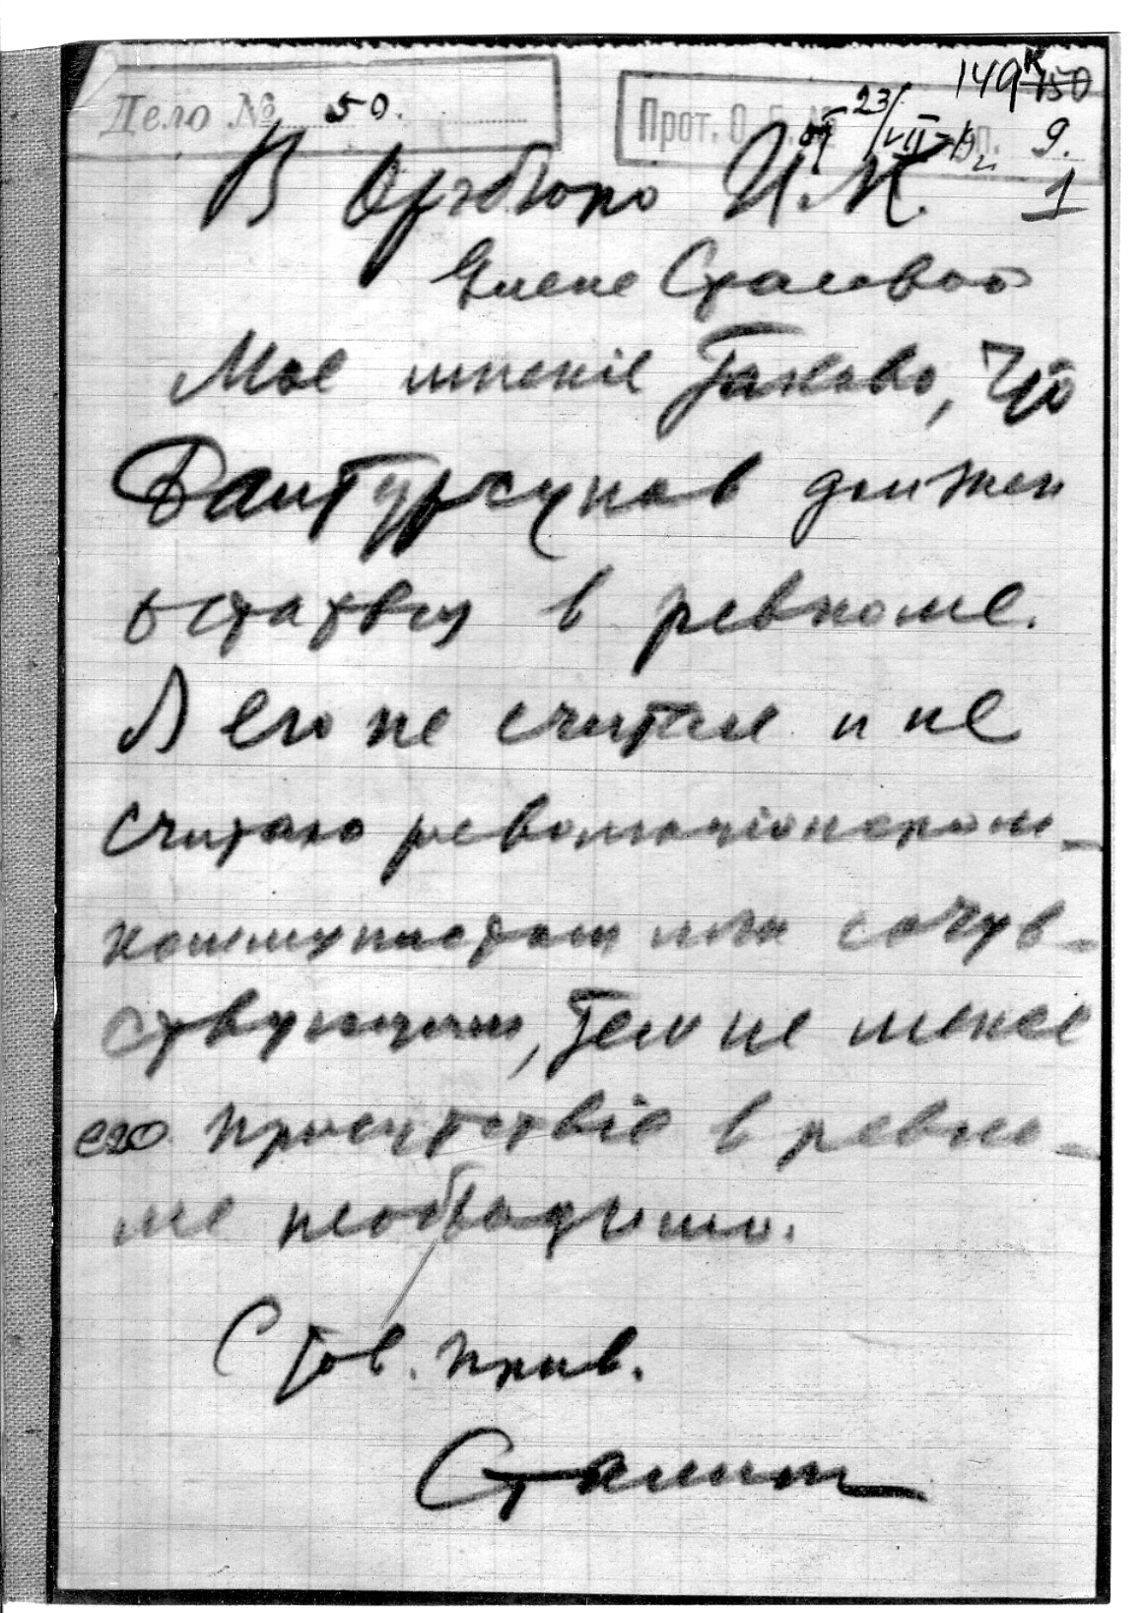 149 150
Дело № 50.
Прот. О. Б. № от 23/VII-19 п. 9.
1
В Оргбюро Ц.К.
Елене Стасовой
Мое мнение таково, что
Байтурсунов должен
остаться в ревкоме.
Я его не считал и не
считаю революціонером-
коммунистом или сочув-
ствующим, тем не менее
его присутствіе в ревко-
ме необходимо.
С тов. прив.
Сталин